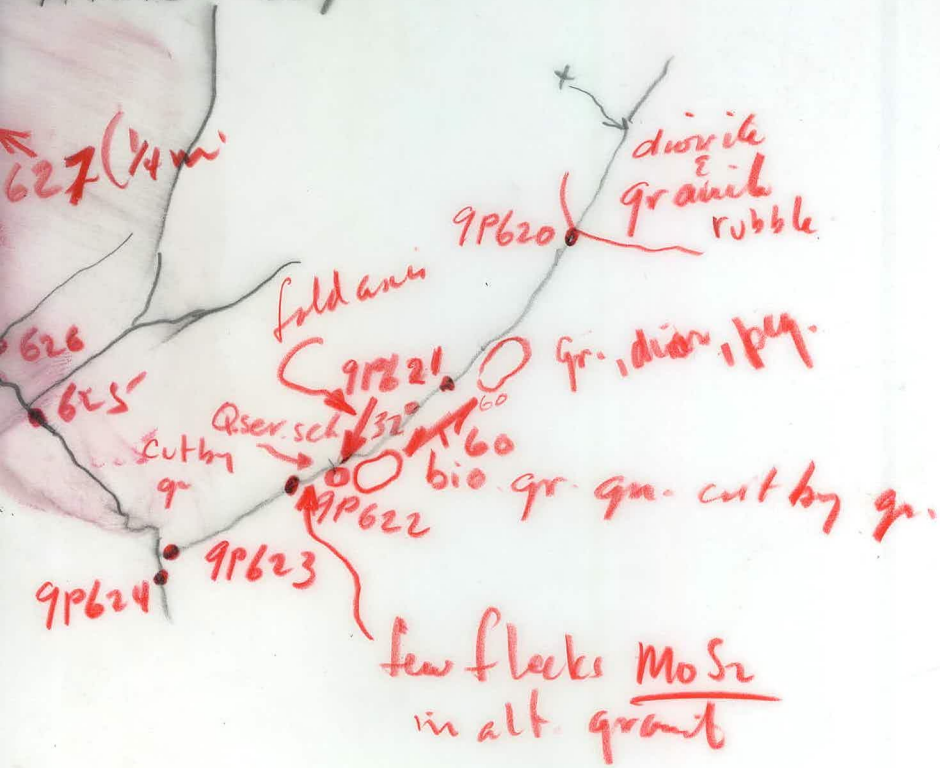 627 (1/4 mi
diorite
&
granite
rubble
9P620
fold axis
626
625
9P621
gr., dior., peg.
60
Q.ser.sch.
32°
60
cut by
gr
bio gr. gn. cut by gr.
9P622
9P623
9P624
few flecks MoS2
in alt. granit